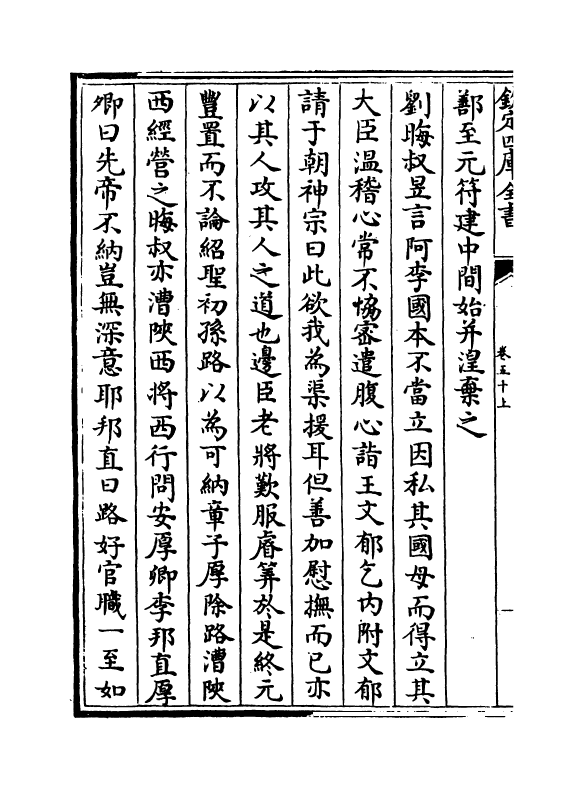 欽定四庫全書
卷五十上
鄯至元符建中間始并湟棄之
劉晦叔昱言阿李國本不當立因私其國母而得立其
大臣溫稽心常不協密遣腹心詣王文郁乞内附文郁
請于朝神宗曰此欲我為渠援耳但善加慰撫而已亦
以其人攻其人之道也邊臣老將歎服睿筭於是終元
豐置而不論紹聖初孫路以為可納章子厚除路漕陜
西經營之晦叔亦漕陜西將西行問安厚卿李邦直厚
卿曰先帝不納豈無深意耶邦直曰路好官職一至如